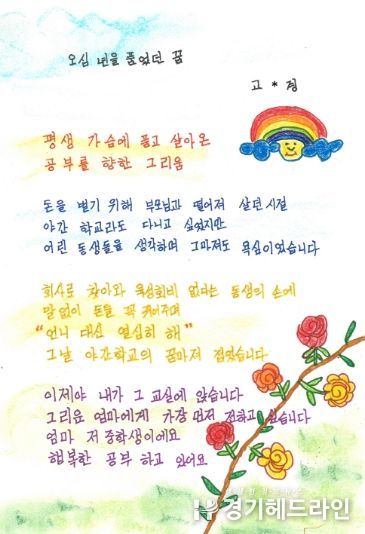 오십 년을 품었던 꿈
고 * 점
평생 가슴에 품고 살아온
공부를 향한 그리움
돈을 벌기 위해 부모님과 떨어져 살던 시절
야간 학교라도 다니고 싶었지만
어린 동생들을 생각하며 그마저도 욕심이었습니다
회사로 찾아와 육성회비 없다는 동생의 손에
말없이 돈을 꼭 쥐어주며
"언니 대신 열심히 해"
그날 야간학교의 꿈마져 접었습니다
이제야 내가 그 교실에 앉습니다
그리운 엄마에게 가장 먼저 전하고 싶습니다
엄마 저 중학생이에요
행복한 공부 하고 있어요
경기헤드라인